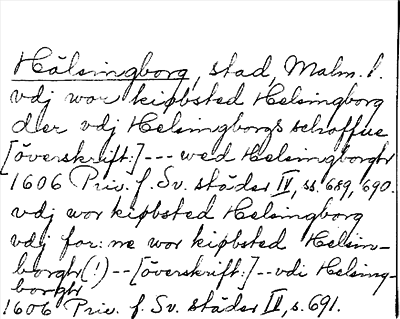 Hälsingborg, stad, Malm. l.
vdj wor kiøbsted Helsingborg
der vdj Helsingborgs schoffue
[överskrift:]--- wed Helsingborghr
1606 Priv. f. Sv. städer IV, ss. 689, 690.
vdj wor kiøbsted Helsingborg
vdj for:ne wor kiøbsted Helsin-
borghr(!)--[överskrift:]--vdi Helsing-
borghr
1606 Priv. f. Sv. städer IV, s. 691.